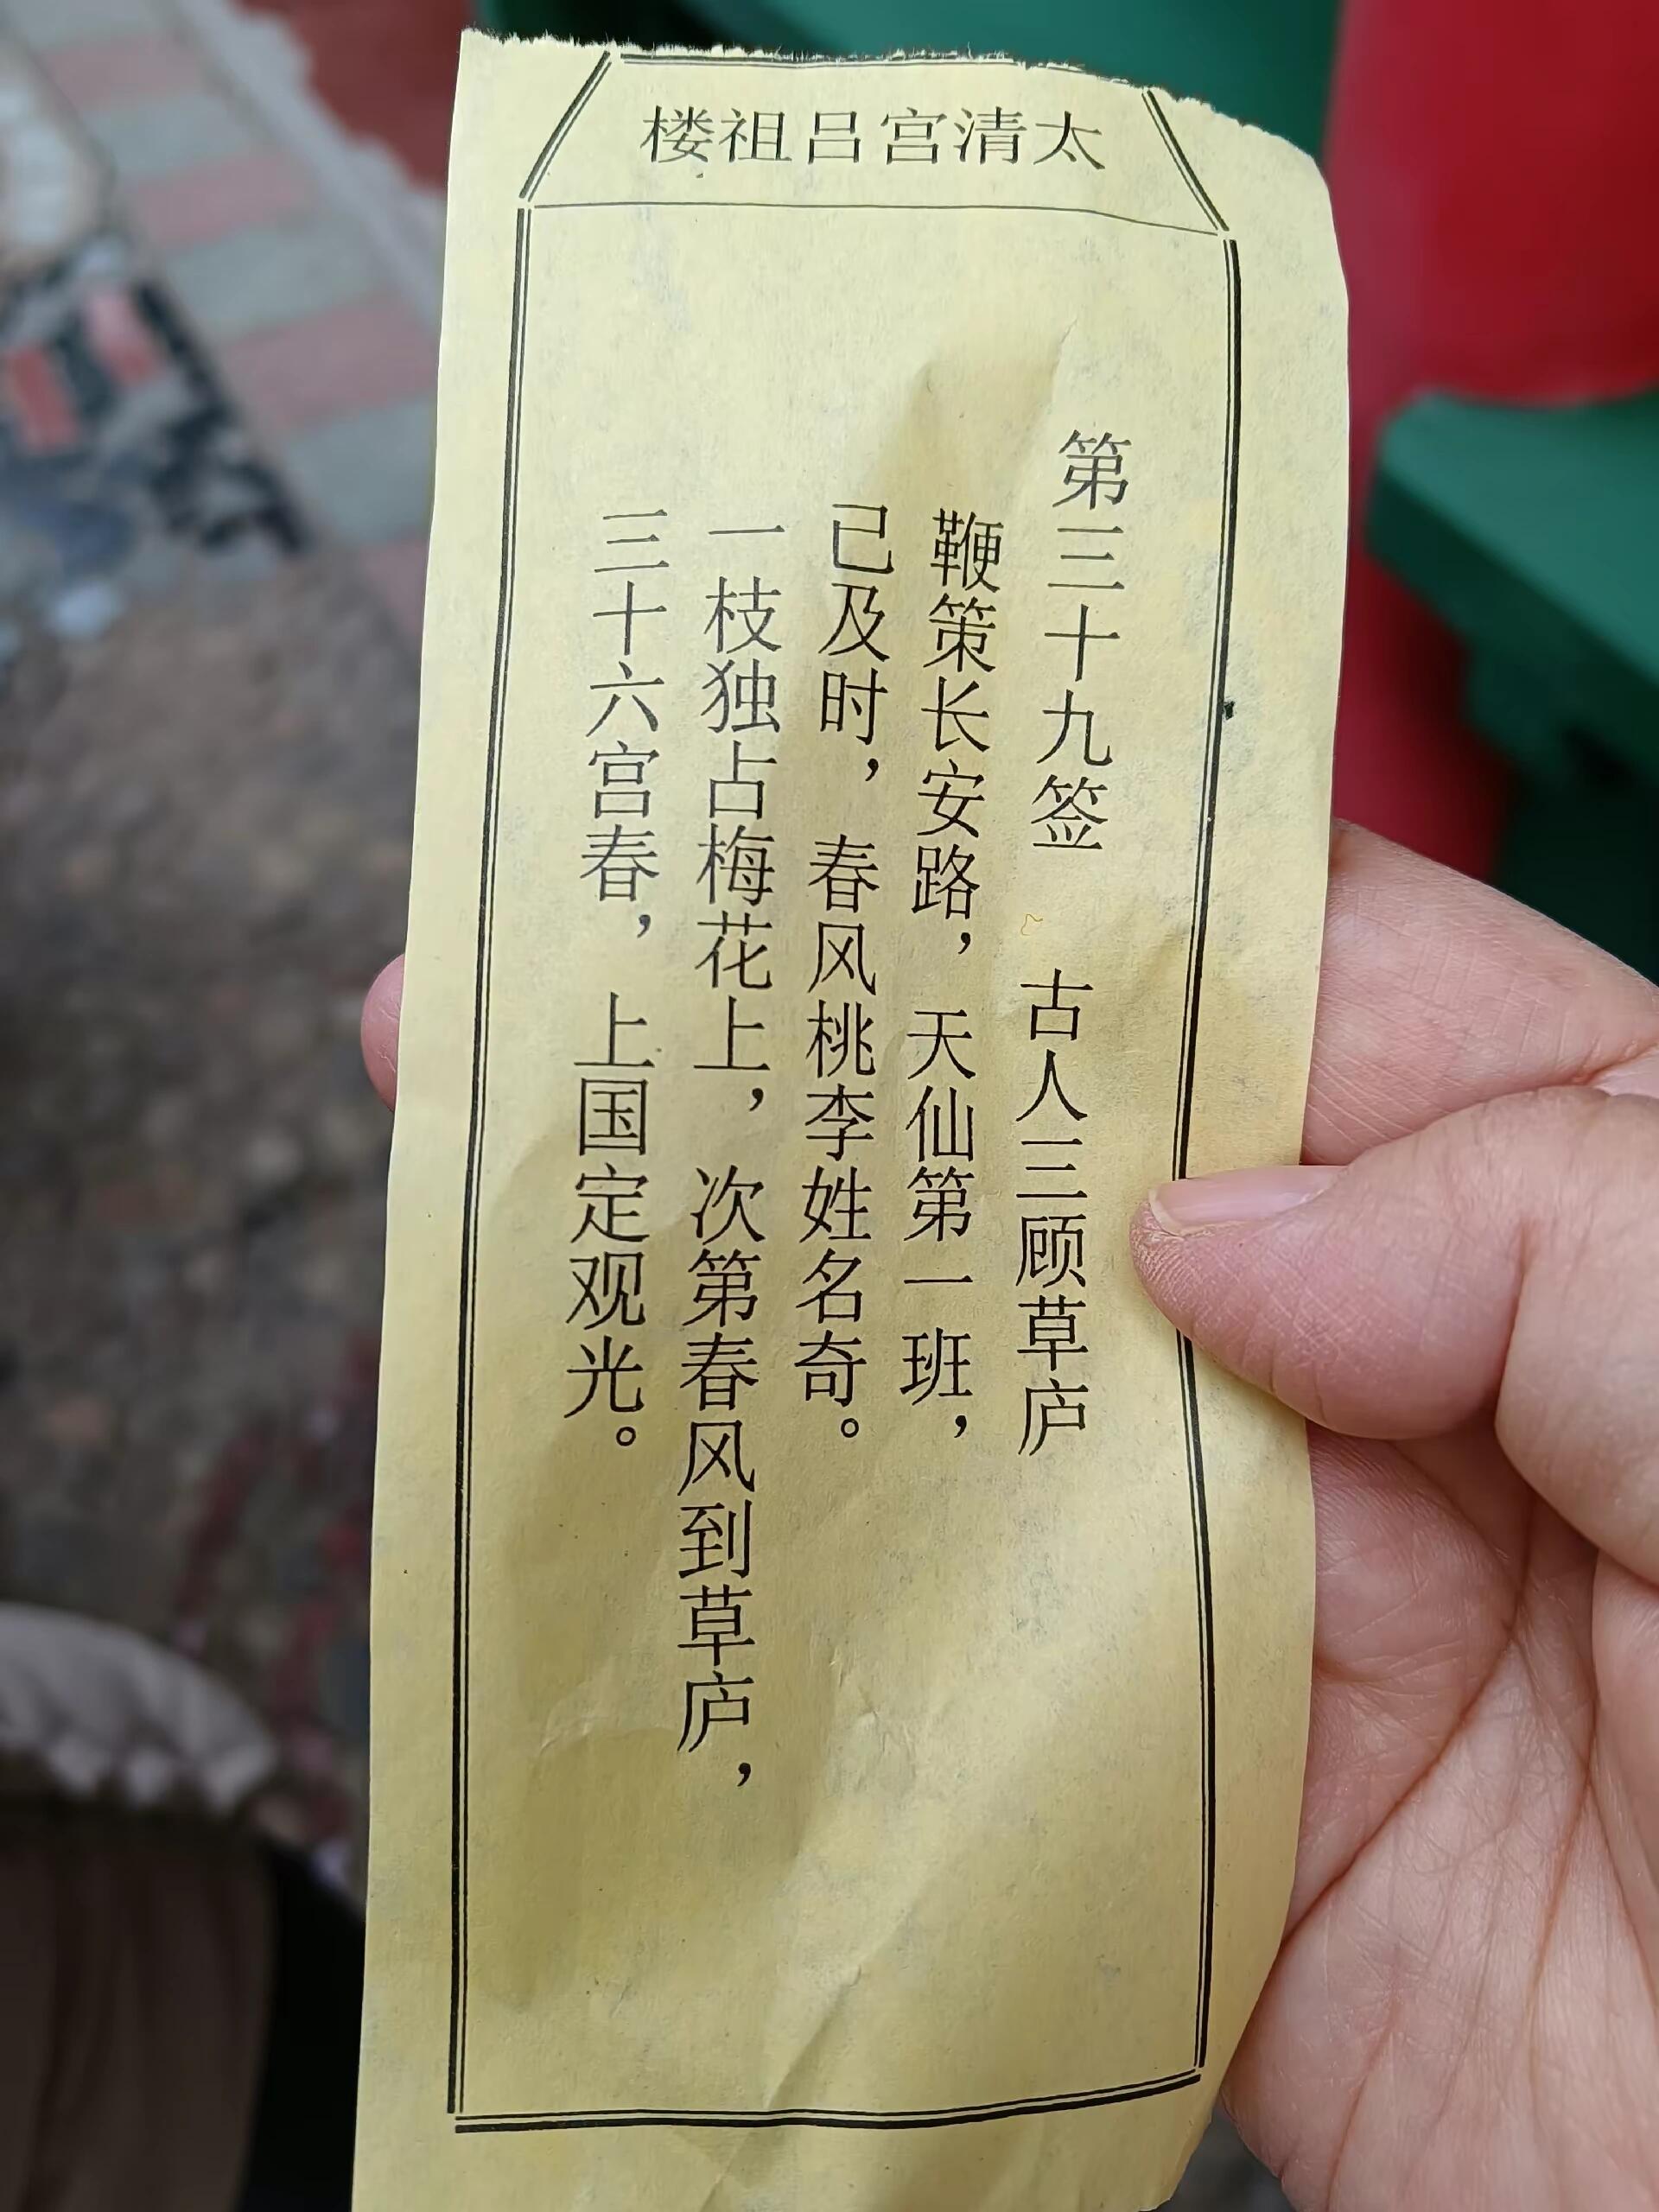 太清宫吕祖楼
第三十九签 古人三顾草庐
鞭策长安路，天仙第一班，
己及时，春风桃李姓名奇。
一枝独占梅花上，次第春风到草庐，
三十六宫春，上国定观光。